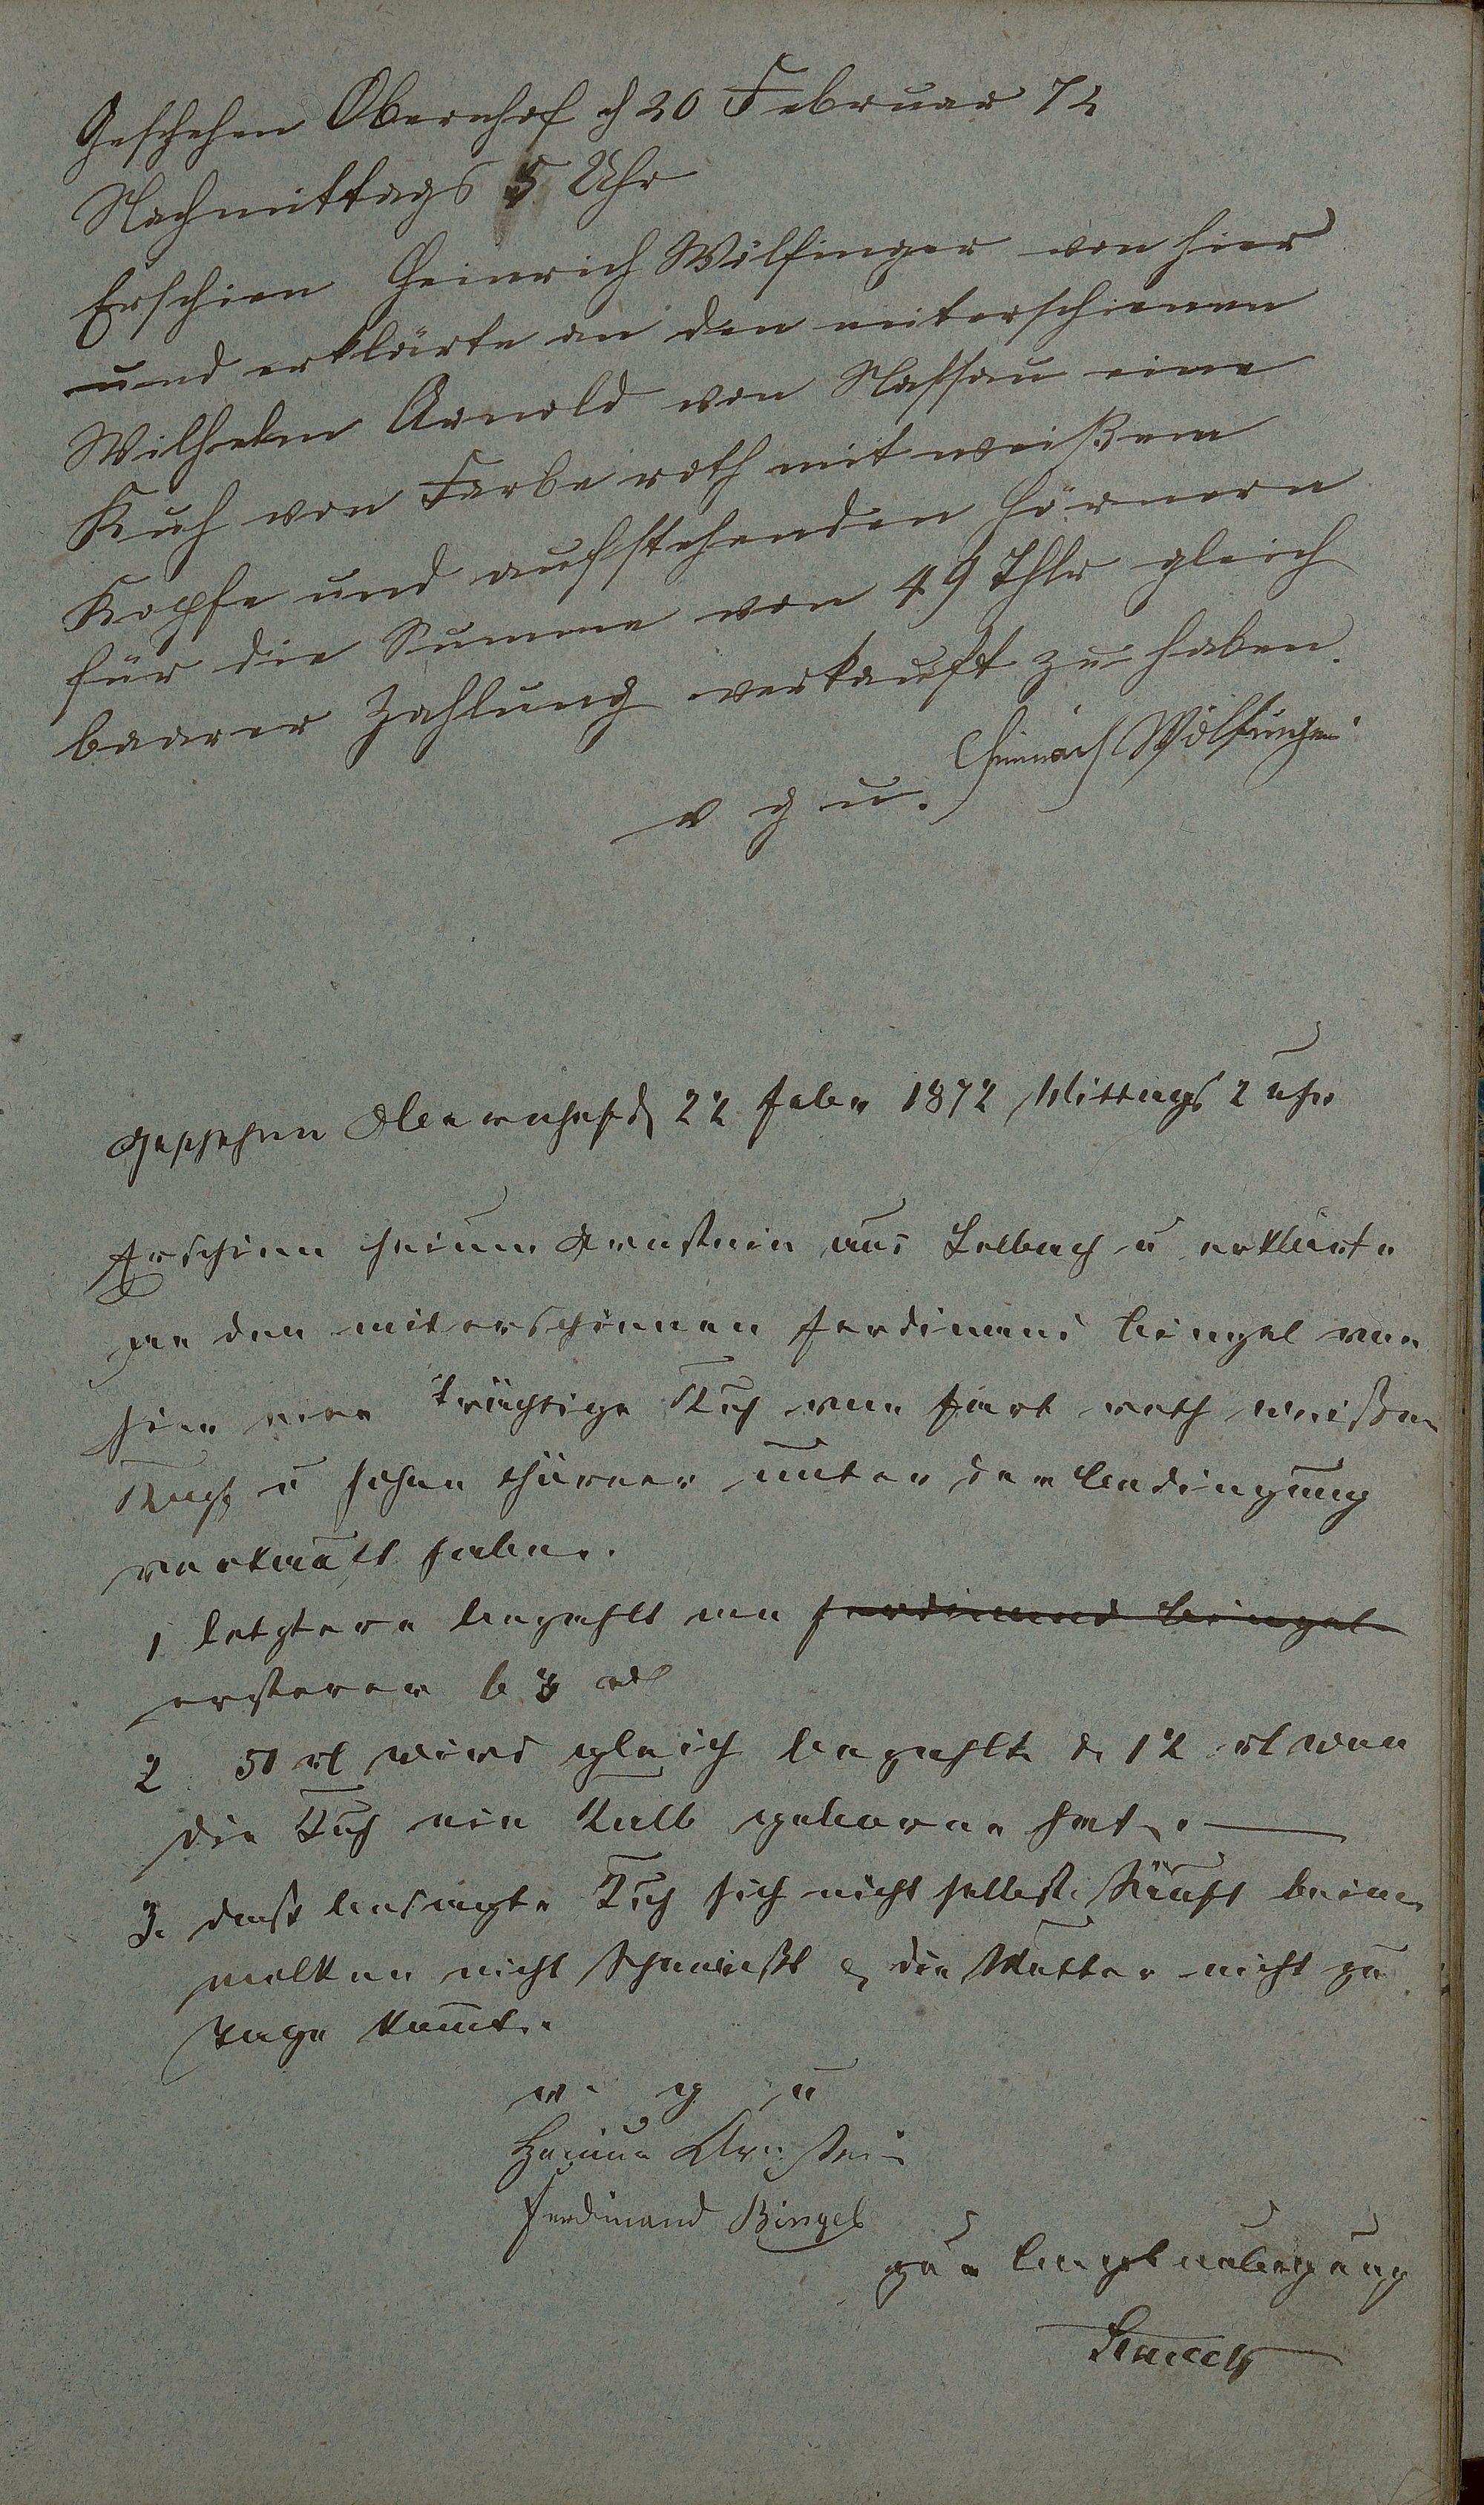 Geschehen Obernhof d 20 Februar 72
Nachmittags 5 Uhr
Erschien Heinrich Wölfinger von hier
und erklärte an den miterschienen
Wilhelm Arnold von Nassau eine
Kuh von Farbe roth mit weißem
Kopfe und aufstehenden Hörnern
für die Summe von 49 Thlr gleich
baarer Zahlung verkauft zu haben.
Heinrich Wölfinger
v g u.
Geschehen Obernhof d 22 Febr 1872 Mittags 2 Uhr
Erschien Heium Arnstein aus u erklärte
an den miterschienen Ferdinand Bingel von
hier eine trächtige Kuh von Farb roth weißen
Kopf u hohen Hörner unter der Bedingung
verkauft haben.
1 letztere bezahlt an Ferdinand Bingel
ersterer 63 rl
2 51 rl wird gleich bezahlt d 12 rl wen
die Kuh ein Kalb geboren hat.
3. daß besagte Kuh sich nicht selbst Säuft beim
melken nicht & die Mutter nicht zu
Tage kommt.
v. g u
Heium Arnstein
Ferdinand Bingel
zur Beglaubigung